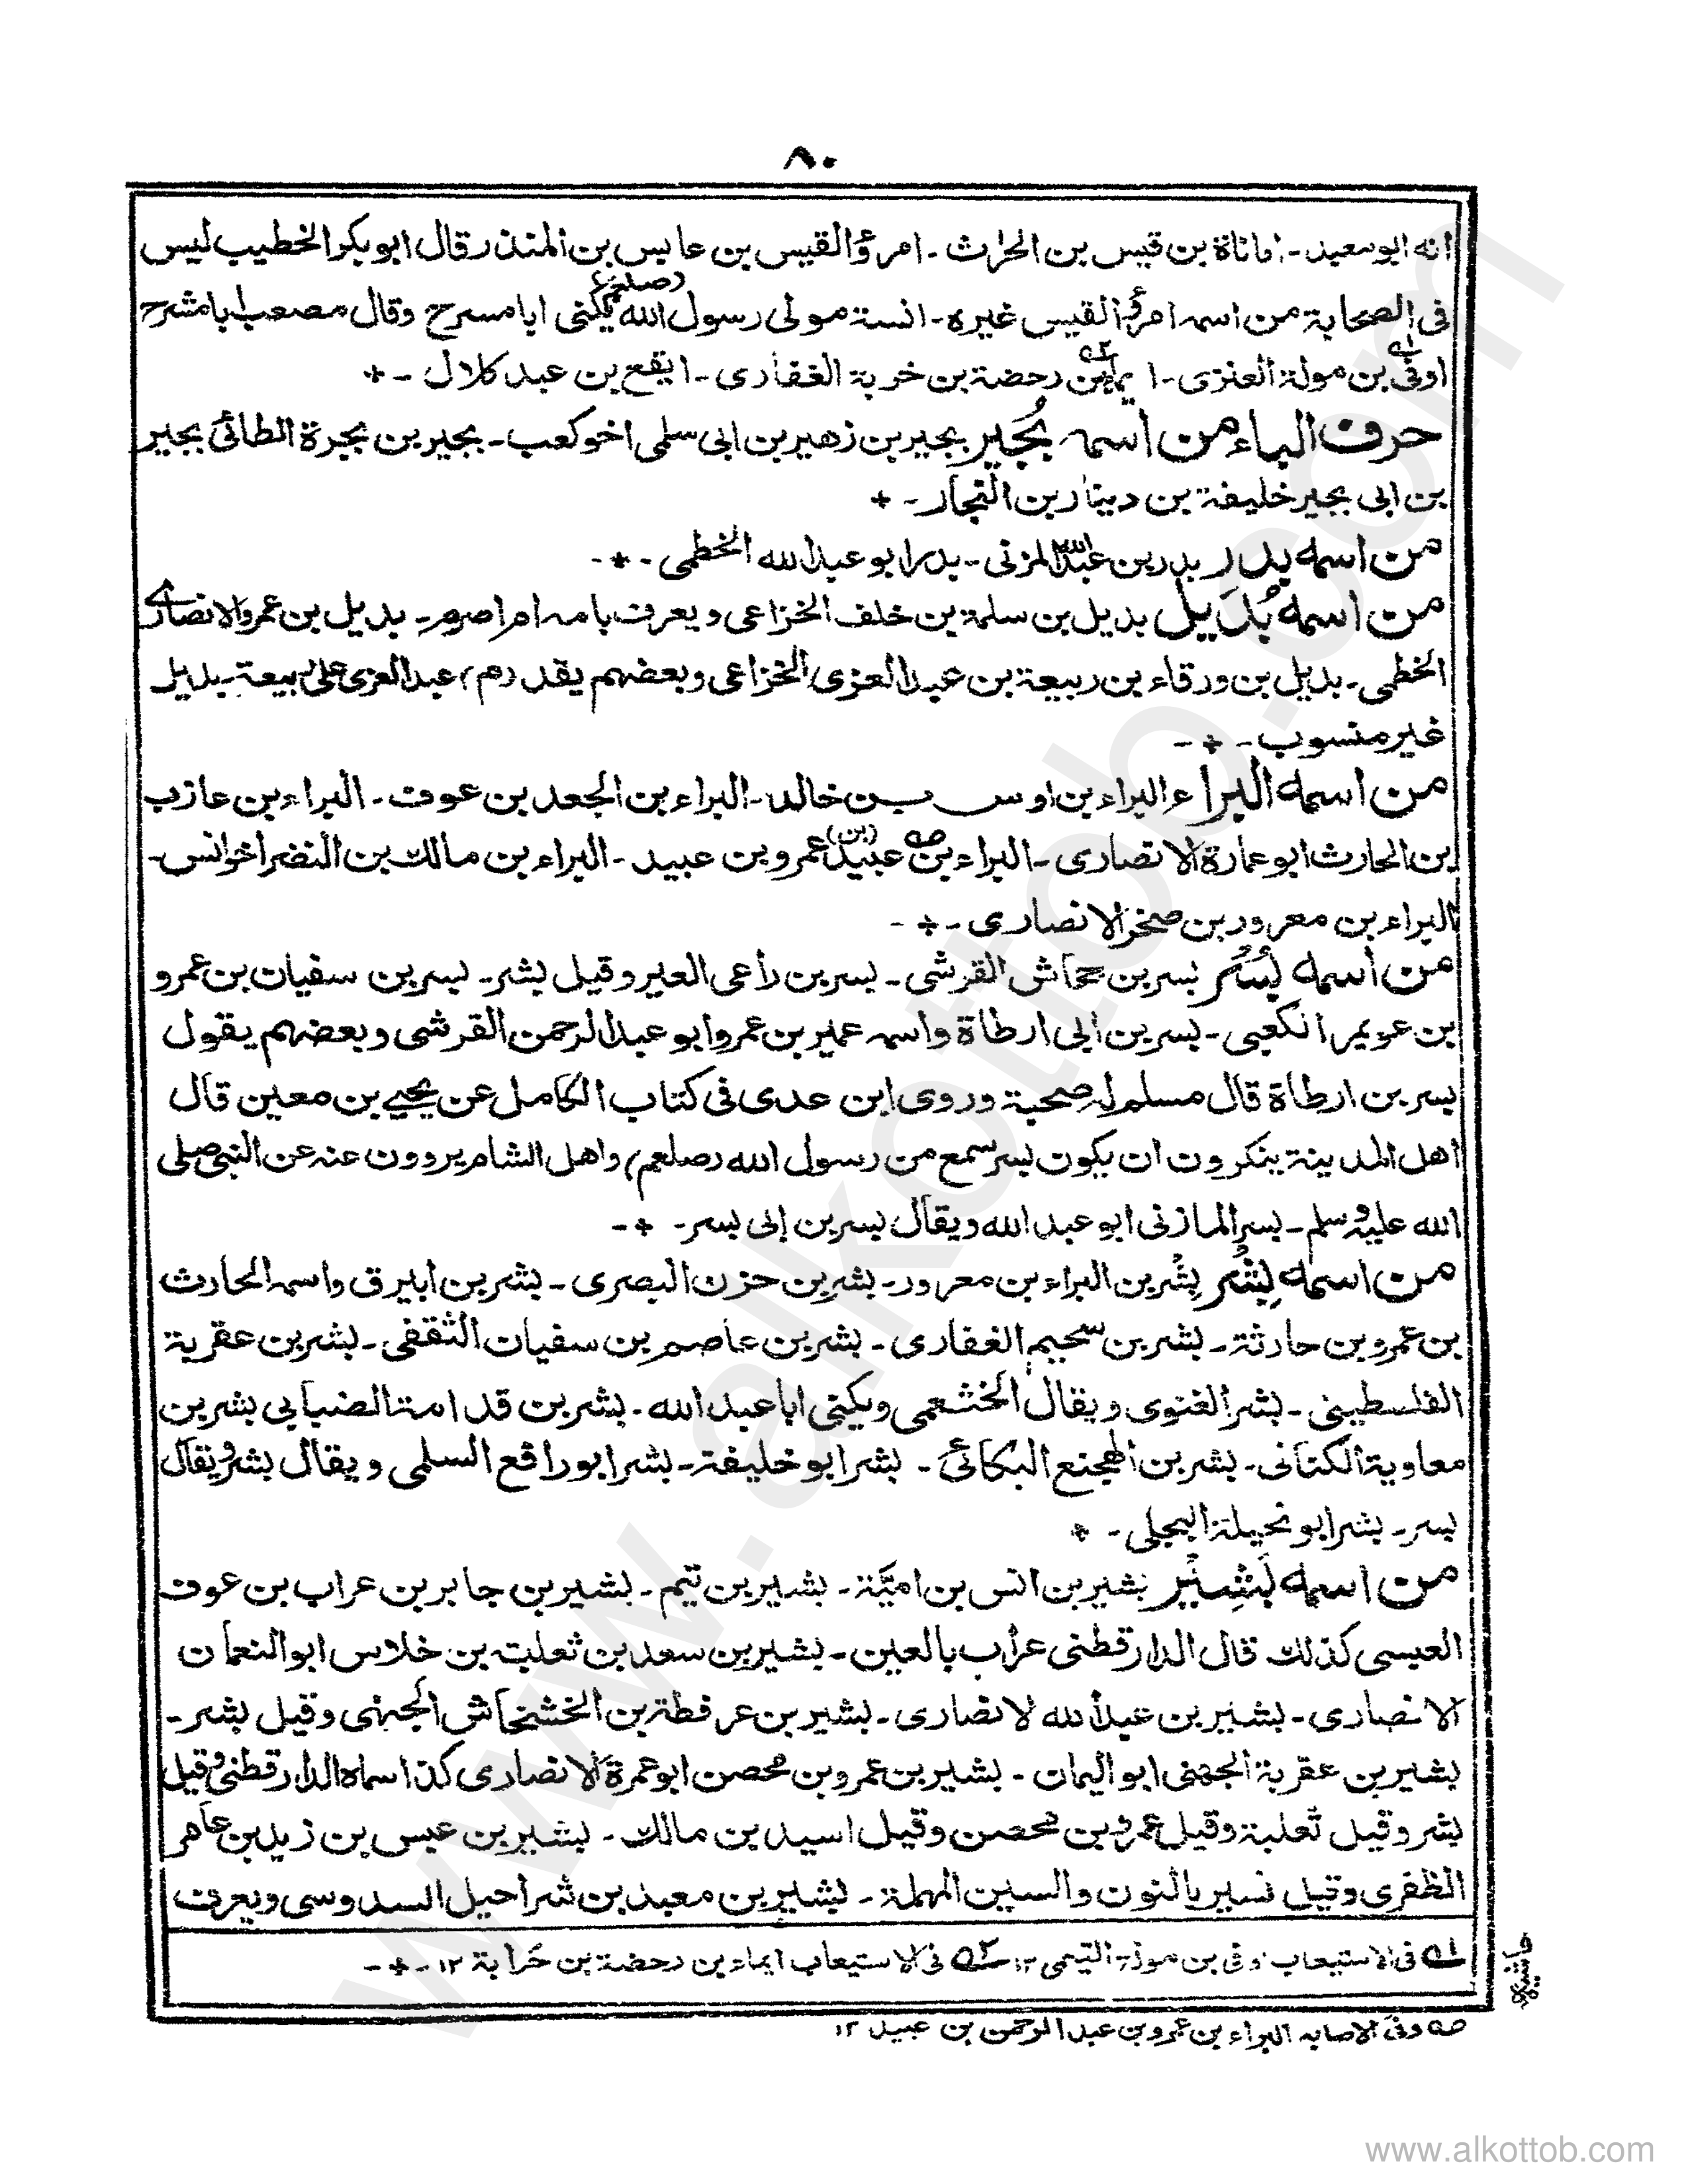 ٨٠
انه ابو سعيد - اماناة بن قيس بن الحراث - امرؤ القيس بن عابس بن المنذر قال ابو بكر الخطيب ليس
فى الصحابة من اسمه امرؤ القيس غيره - انسة مولى رسول الله (صلعم) يكنى ابا مسرح وقال مصعب ابا مشرح
اوفى بن مولة العنزى - ايماء بن رحضة بن خربة الغفارى - ايقع بن عبد كلال - *
حرف الباء من اسمه بُجَير بجير بن زهير بن ابى سلمى اخو كعب - بجير بن بجرة الطائى بجير
بن ابى بجير خليفة بن دينار بن النجار - *
من اسمه بدر بدر بن عبد الله المزنى - بدر ابو عبد الله الخطمى - * -
من اسمه بُدَيل بديل بن سلمة بن خلف الخزاعى ويعرف بامه ام اصرم - بديل بن عمرو الانصارى
الخطمى - بديل بن ورقاء بن ربيعة بن عبد العزى الخزاعى وبعضهم يقد (م) عبد العزى على ربيعة - بديل
غير منسوب - * -
من اسمه البراء البراء بن اوس بن خالد - البراء بن الجعد بن عوف - البراء بن عازب
بن الحارث ابو عمارة الانصارى - البراء بن عبيد (بن) عمرو بن عبيد - البراء بن مالك بن النضر اخو انس -
البراء بن معرور بن صخر الانصارى - * -
من اسمه بُسْر بسر بن جحاش القرشى - بسر بن راعى العير وقيل بشر - بسر بن سفيان بن عمرو
بن عويمر الكعبى - بسر بن ابى ارطاة واسمه عمير بن عمرو ابو عبد الرحمن القرشى وبعضهم يقول
بسر بن ارطاة قال مسلم له صحبة وروى ابن عدى فى كتاب الكامل عن يحيى بن معين قال
اهل المدينة ينكرون ان يكون بسر سمع من رسول الله (صلعم) واهل الشام يروون عنه عن النبى صلى
الله عليه وسلم - بسر المازنى ابو عبد الله ويقال بسر بن ابى بسر - * -
من اسمه بِشْر بِشْر بن البراء بن معرور - بشر بن حزن البصرى - بشر بن ابيرق واسمه الحارث
بن عمرو بن حارثة - بشر بن سحيم الغفارى - بشر بن عاصم بن سفيان الثقفى - بشر بن عقربة
الفلسطينى - بشر الغنوى ويقال الخثعمى ويكنى ابا عبد الله - بشر بن قدامة الضبابى بشر بن
معاوية الكنانى - بشر بن الهجنع البكائى - بشر ابو خليفة - بشر ابو رافع السلمى ويقال بشر ويقال
بسر - بشر ابو نحيلة البجلى - *
من اسمه بَشِيْر بشير بن انس بن اميّة - بشير بن تيم - بشير بن جابر بن عراب بن عوف
العيسى كذلك قال الدارقطنى عراب بالعين - بشير بن سعد بن ثعلبة بن خلاس ابو النعمان
الانصارى - بشير بن عبد الله لانصارى - بشير بن عرفطة بن الخشخاش الجهنى وقيل بشر -
بشير بن عقربة الجهنى ابو اليمان - بشير بن عمرو بن محصن ابو عمرة الانصارى كذا سماه الدارقطنى وقيل
بشر وقيل ثعلبة وقيل عمرو بن محصن وقيل اسيد بن مالك - بشير بن عبس بن زيد بن عامر
الظفرى وقيل نسير بالنون والسين المهملة - بشير بن معبد بن شراحيل السدوسى ويعرف
حاشية
١ه فى الاستيعاب اوفى بن مولة التيمى ١٢ ٢ه فى الاستيعاب ايماء بن رحضة بن خَرابة ١٢ - * -
صه وفى الاصابه البراء بن عمرو بن عبد الرحمن بن عبيد ١٢
www.alkottob.com
www.alkottob.com